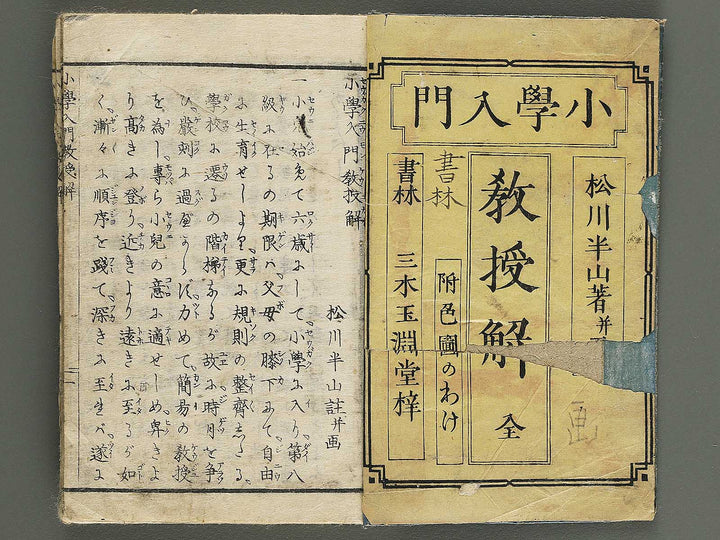 小學入門
松川半山著并
教授解 全
附色圖のわけ
書林
書林 三木玉淵堂梓
画
小學入門教授解
松川半山註并画
一小兒始免て六歳尓して小學に入り第八
級に在るの期限ハ父母の膝下尓て自由
に生育せしより更に規則の整齊志多る
學校に遷るの階梯なるが故に時月を争
ひ嚴刻に過ぎず力めて簡易の教授
を為し專ら小兒の意に適せしめ卑きよ
り髙きに登り近きより遠きに至るが如
く漸々に順序を践て深きに至ら バ遂に
小學入門教授解